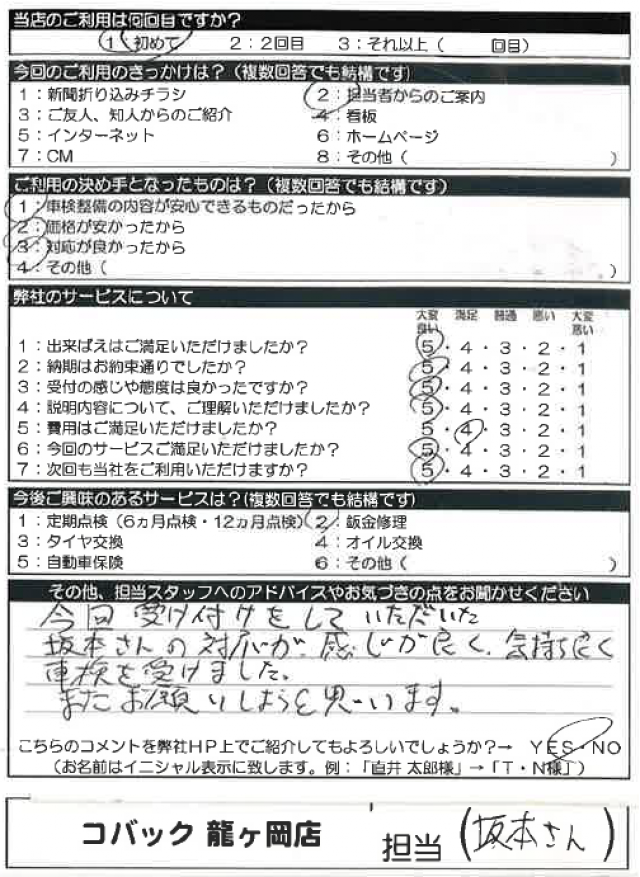 当店のご利用は何回目ですか？
1：初めて 2：2回目 3：それ以上（ 回目）
今回のご利用のきっかけは？（複数回答でも結構です）
1：新聞折り込みチラシ 2：担当者からのご案内
3：ご友人、知人からのご紹介 4：看板
5：インターネット 6：ホームページ
7：CM 8：その他（ ）
ご利用の決め手となったものは？（複数回答でも結構です）
1：車検整備の内容が安心できるものだったから
2：価格が安かったから
3：対応が良かったから
4：その他（ ）
弊社のサービスについて
大変良い 満足 普通 悪い 大変悪い
1：出来ばえはご満足いただけましたか？ 5・4・3・2・1
2：納期はお約束通りでしたか？ 5・4・3・2・1
3：受付の感じや態度は良かったですか？ 5・4・3・2・1
4：説明内容について、ご理解いただけましたか？ 5・4・3・2・1
5：費用はご満足いただけましたか？ 5・4・3・2・1
6：今回のサービスご満足いただけましたか？ 5・4・3・2・1
7：次回も当社をご利用いただけますか？ 5・4・3・2・1
今後ご興味のあるサービスは？(複数回答でも結構です)
1：定期点検（6ヵ月点検・12ヵ月点検） 2：鈑金修理
3：タイヤ交換 4：オイル交換
5：自動車保険 6：その他（ ）
その他、担当スタッフへのアドバイスやお気づきの点をお聞かせください
今回受け付けをしていただいた
坂本さんの対応が、感じが良く、気持ち良く
車検を受けました。
またお願いしようと思います。
こちらのコメントを弊社HP上でご紹介してもよろしいでしょうか？→ YES・NO
（お名前はイニシャル表示に致します。例：「直井 太郎様」→「T・N様」）
コバック 龍ヶ岡店 担当（坂本さん）